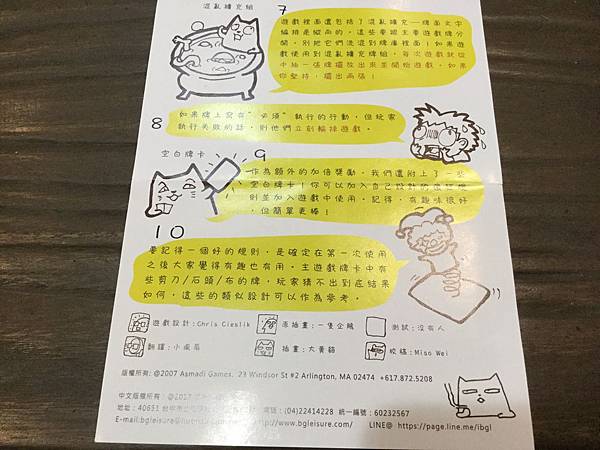 混亂擴充組
7
遊戲裡面還包括了混亂擴充—牌面文字
編排是縱向的，這些要跟主要遊戲牌分
開，別把它們洗混到牌庫裡面！如果遊
戲使用到混亂擴充牌組，每次遊戲就從
中抽一張牌擺放出來並開始遊戲，如果
你堅持，擺出兩張！
8
如果牌上寫有"必須"執行的行動，但玩家
執行失敗的話，則他們立刻輸掉遊戲。
空白牌卡
9
作為額外的加倍獎勵，我們還附上了一些
空白牌卡！你可以加入自己設計的
則並加入遊戲中使用，記得，有趣味很好，
但簡單更棒！
10
要記得一個好的規則，是確定在第一次使用
之後大家覺得有趣也有用。主遊戲牌卡中有
些剪刀/石頭/布的牌，玩家猜不出到底結果
如何，這些的類似設計可以作為參考。
遊戲設計：Chris Cieslik
原插畫：一隻企鵝
測試：沒有人
翻譯：小瘋瓜
插畫：大黃貓
校稿：Miso Wei
版權所有: @2007 Asmadi Games. 23 Windsor St #2 Arlington, MA 02474 +617.872.5208
中文版權所有: @2017
地址：40651 台中市 (04)22414228 統一編號：60232567
E-mail:bgleisure@ http://www.bgleisure.com/ LINE@ https://page.line.me/ibgl